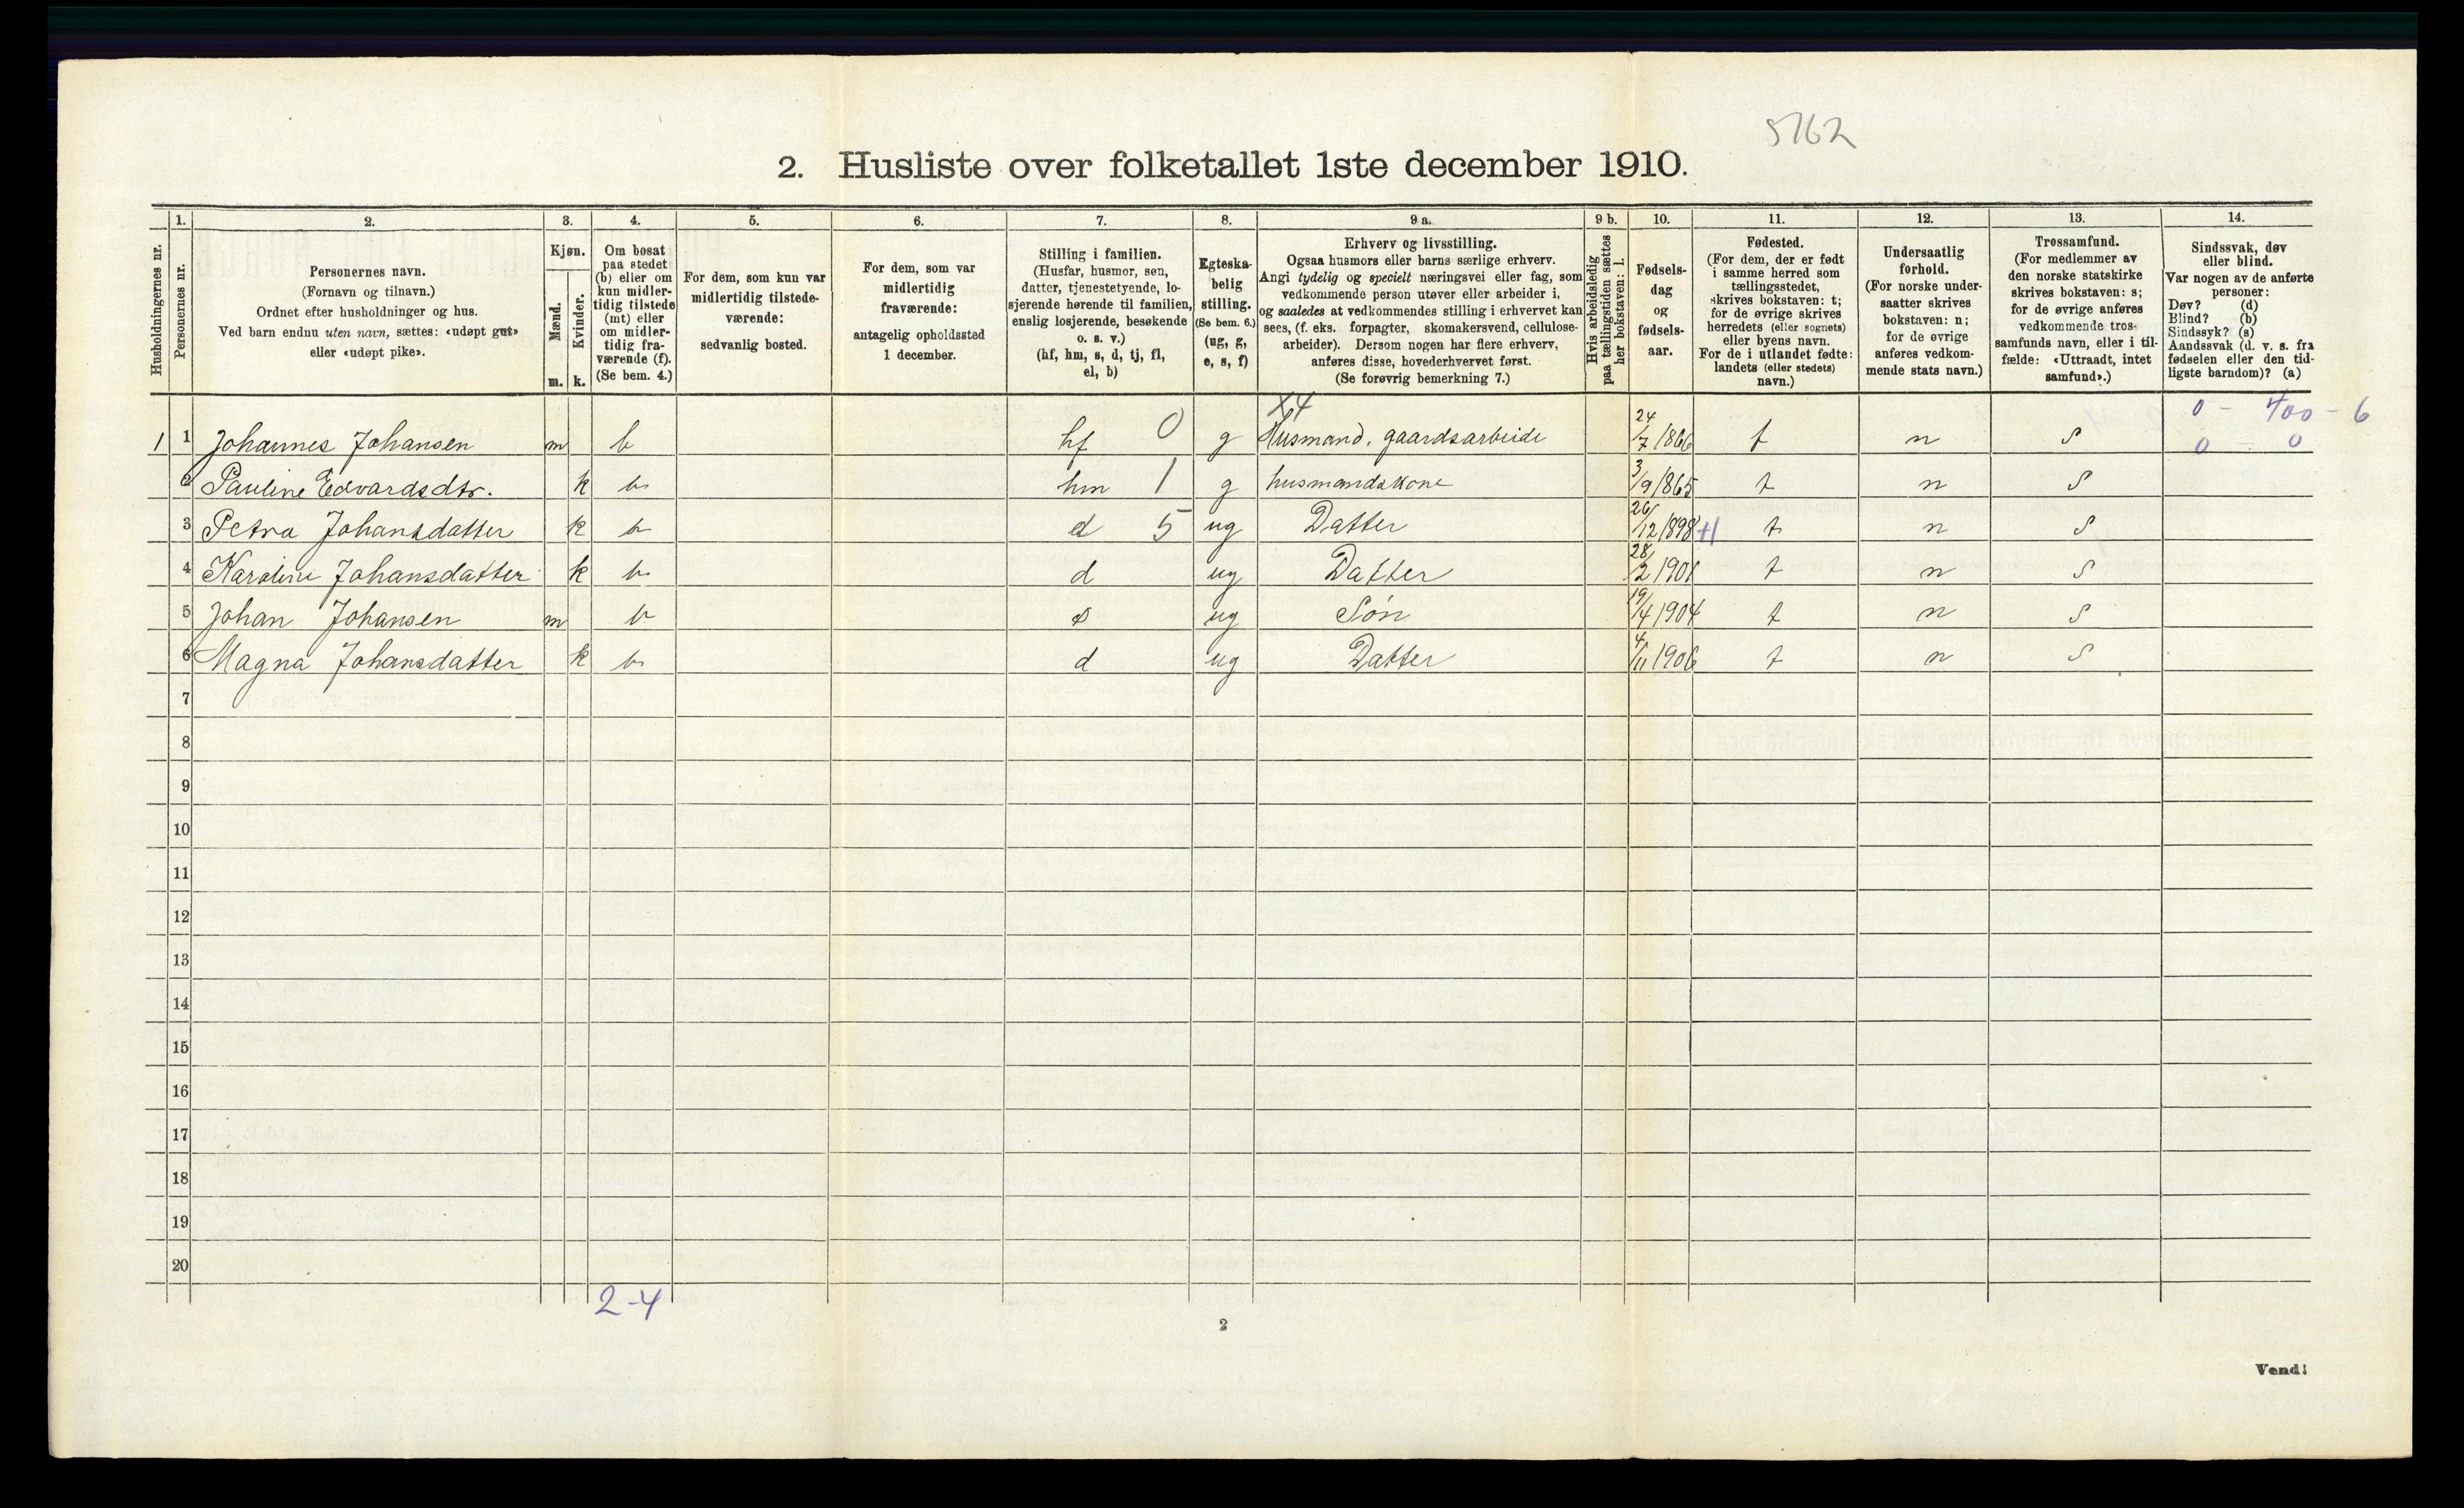 5762
2. Husliste over folketallet 1ste december 1910.
Husholdningernes nr.
1.
Personernes nr.
2.
Personernes navn.
(Fornavn og tilnavn.)
Ordnet efter husholdninger og hus.
Ved barn endnu uten navn, sættes: «udøpt gut»
eller «udøpt pike».
3.
Kjøn.
Mænd.
m.
Kvinder.
k.
4.
Om bosat
paa stedet
(b) eller om
kun midler-
tidig tilstede
(mt) eller
om midler-
tidig fra-
værende (f).
(Se bem. 4.)
5.
For dem, som kun var
midlertidig tilstede-
værende:
sedvanlig bosted.
6.
For dem, som var
midlertidig
fraværende:
antagelig opholdssted
1 december.
7.
Stilling i familien.
(Husfar, husmor, søn,
datter, tjenestetyende, lo-
sjerende hørende til familien,
enslig losjerende, besøkende
o. s. v.)
(hf, hm, s, d, tj, fl,
el, b)
8.
Egteska-
belig
stilling.
(Se bem. 6.)
(ug, g,
e, s, f)
9 a.
Erhverv og livsstilling.
Ogsaa husmors eller barns særlige erhverv.
Angi tydelig og specielt næringsvei eller fag, som
vedkommende person utøver eller arbeider i,
og saaledes at vedkommendes stilling i erhvervet kan
sees, (f. eks. forpagter, skomakersvend, cellulose-
arbeider). Dersom nogen har flere erhverv,
anføres disse, hovederhvervet først.
(Se forøvrig bemerkning 7.)
9 b.
Hvis arbeidsledig
paa tællingstiden sættes
her bokstaven: l.
10.
Fødsels-
dag
og
fødsels-
aar.
11.
Fødested.
(For dem, der er født
i samme herred som
tællingsstedet,
skrives bokstaven: t;
for de øvrige skrives
herredets (eller sognets)
eller byens navn.
For de i utlandet fødte:
landets (eller stedets)
navn.)
12.
Undersaatlig
forhold.
(For norske under-
saatter skrives
bokstaven: n;
for de øvrige
anføres vedkom-
mende stats navn.)
13.
Trossamfund.
(For medlemmer av
den norske statskirke
skrives bokstaven: s;
for de øvrige anføres
vedkommende tros-
samfunds navn, eller i til-
fælde: «Uttraadt, intet
samfund».)
14.
Sindssvak, døv
eller blind.
Var nogen av de anførte
personer:
Døv? (d)
Blind? (b)
Sindssyk? (s)
Aandssvak (d. v. s. fra
fødselen eller den tid-
ligste barndom)? (a)
X4
0 - 400 - 6
1 1 Johannes Johansen m b hf 0 g Husmand, gaardsarbeide 24/7 1866 t n s 0 - 0
2 Pauline Edvardsdtr. k b hm 1 g husmandskone 3/9 1865 t n s
3 Petra Johansdatter k b d 5 ug Datter 26/12 1898 +1 t n s
4 Karoline Johansdatter k b d ug Datter 28/2 1901 t n s
5 Johan Johansen m b s ug Søn 19/4 1904 t n s
6 Magna Johansdatter k b d ug Datter 4/11 1906 t n s
7
8
9
10
11
12
13
14
15
16
17
18
19
20
2-4
2
Vend!